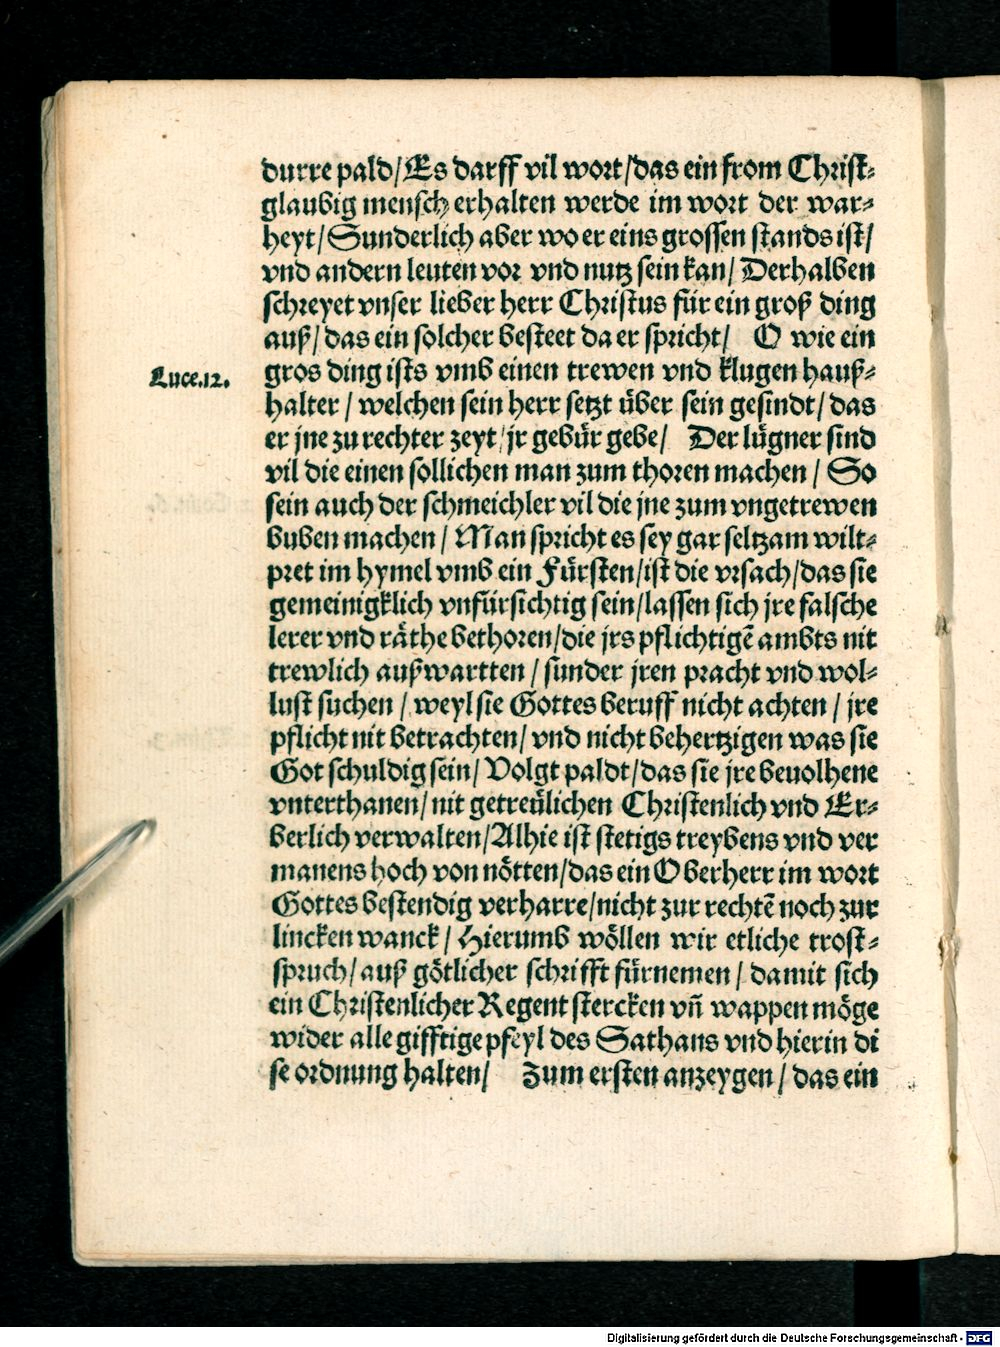 durre pald/Es darff vil wort/das ein from Christ⸗
glaubig mensch erhalten werde im wort der war⸗
heyt/Sunderlich aber wo er eins grossen stands ist/
vnd andern leuten vor vnd nutz sein kan/ Derhalben
schreyet vnser lieber herr Christus für ein groß ding
auß/das ein solcher besteet da er spricht/ O wie ein
Luce.12. gros ding ists vmb einen trewen vnd klugen hauß⸗
halter/ welchen sein herr setzt über sein gesindt/das
er jne zu rechter zeyt/jr gebür gebe/ Der lügner sind
vil die einen sollichen man zum thoren machen/ So
sein auch der schmeichler vil die jne zum vngetrewen
buben machen/ Man spricht es sey gar seltzam wilt⸗
pret im hymel vmb ein Fürsten/ist die vrsach/das sie
gemeinigklich vnfürsichtig sein/lassen sich jre falsche
lerer vnd räthe bethoren/die jrs pflichtigē ambts nit
trewlich außwartten/sunder jren pracht vnd wol⸗
lust suchen/weyl sie Gottes beruff nicht achten/ jre
pflicht nit betrachten/ vnd nicht behertzigen was sie
Got schuldig sein/ Volgt paldt/das sie jre beuolhene
vnterthanen/nit getreülichen Christenlich vnd Er⸗
berlich verwalten/Alhie ist stetigs treybens vnd ver
manens hoch von nötten/das ein Oberherr im wort
Gottes bestendig verharre/nicht zur rechtē noch zur
lincken wanck/ Hierumb wöllen wir etliche trost⸗
spruch/auß götlicher schrifft fürnemen/ damit sich
ein Christenlicher Regent stercken vñ wappen möge
wider alle gifftige pfeyl des Sathans vnd hierin di
se ordnung halten/ Zum ersten anzeygen/ das ein
Digitalisierung gefördert durch die Deutsche Forschungsgemeinschaft - DFG